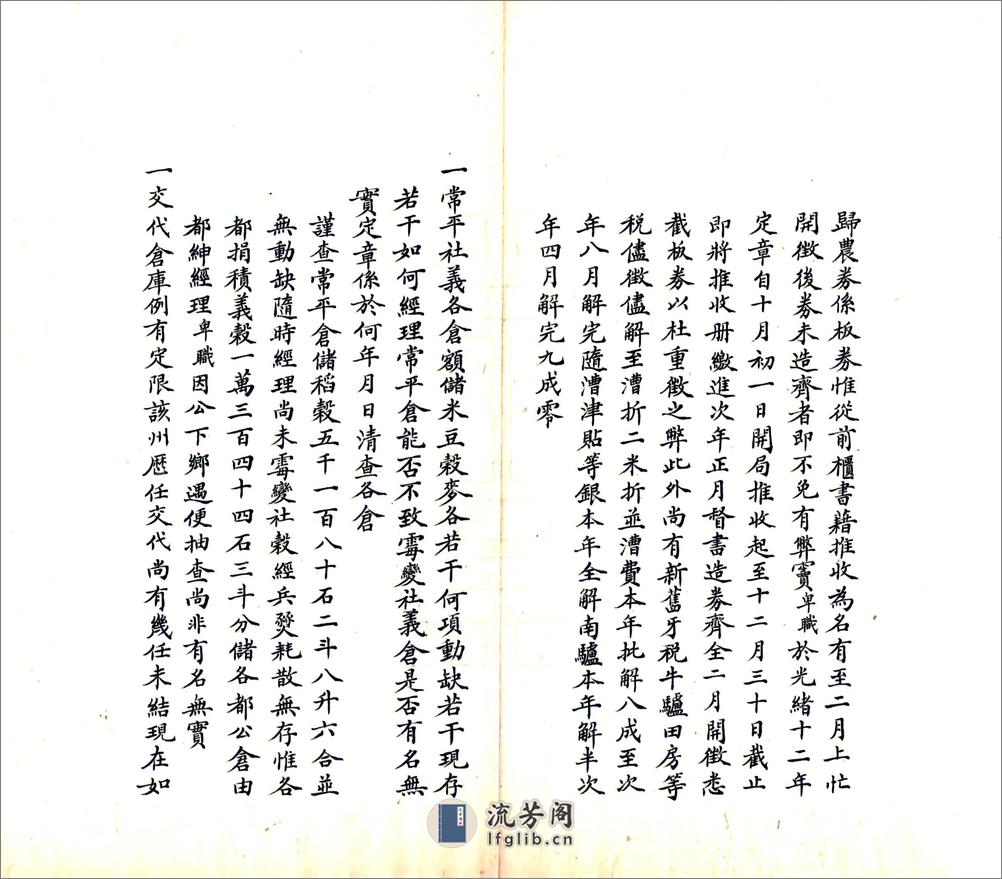 歸農券係板券惟從前櫃書藉推收為名有至二月上忙
開徵後券未造齊者即不免有弊竇卑職於光緒十二年
定章自十月初一日開局推收起至十二月三十日截止
即將推收册繳進次年正月督書造券齊全二月開徵悉
截板券以杜重徵之弊此外尚有新舊牙稅牛驢田房等
稅儘徵儘解至漕折二米折並漕費本年批解八成至次
年八月解完隨漕津貼等銀本年全解南驢本年解半次
年四月解完九成零
一常平社義各倉額儲米豆穀麥各若干何項動缺若干現存
若干如何經理常平倉能否不致霉變社義倉是否有名無
實定章係於何年月日清查各倉
謹查常平倉儲稻穀五千一百八十石二斗八升六合並
無動缺隨時經理尚未霉變社穀經兵燹耗散無存惟各
都捐積義穀一萬三百四十四石三斗分儲各都公倉由
都紳經理卑職因公下鄉遇便抽查尚非有名無實
一交代倉庫例有定限該州歷任交代尚有幾任未結現在如
流芳阁
lfglib.cn